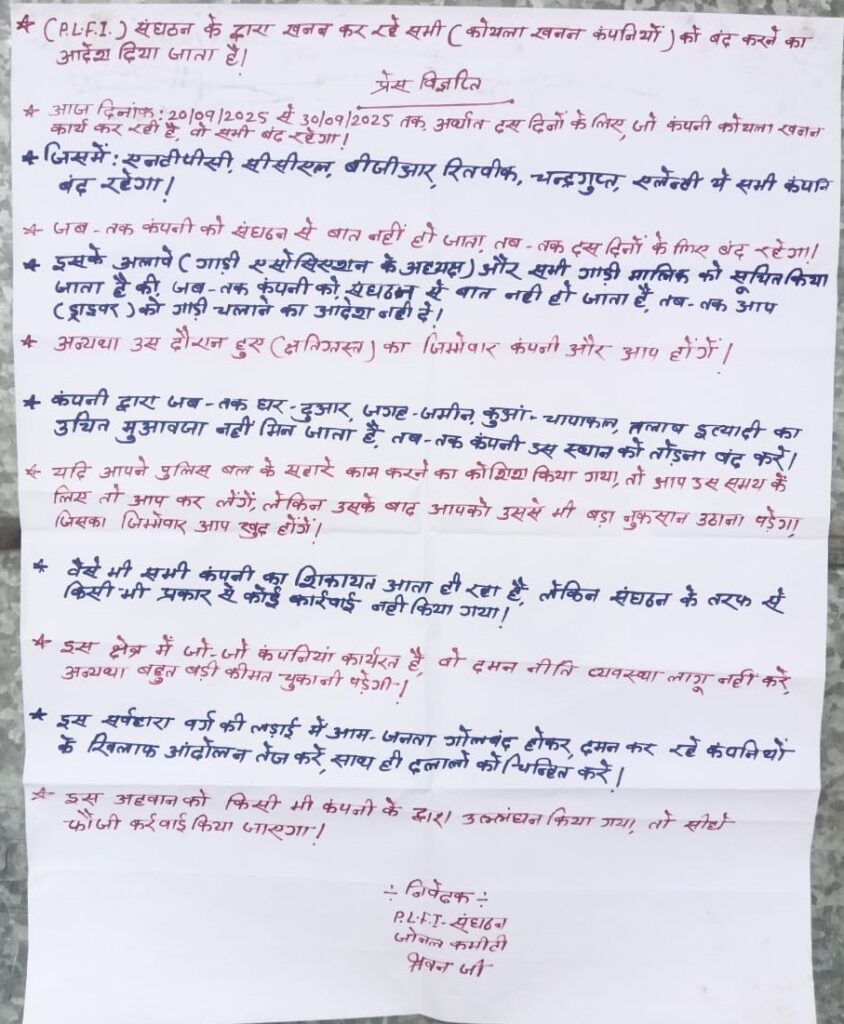 * (P.L.F.I.) संघठन के द्वारा खनन कर रहे सभी (कोयला खनन कंपनियों) को बंद करने का
आदेश दिया जाता है।
प्रेस विज्ञप्ति
* आज दिनांक: 20/09/2025 से 30/09/2025 तक, अर्थात दस दिनों के लिए, जो कंपनी कोयला खनन
कार्य कर रही है, वो सभी बंद रहेगा!
* जिसमें: एनटीपीसी, सीसीएल, बीजीआर, रितवीक, चन्द्रगुप्त, एलेन्टी ये सभी कंपनि
बंद रहेगा!
* जब-तक कंपनी को संघठन से बात नहीं हो जाता, तब-तक दस दिनों के लिए बंद रहेगा!
* इसके अलावे (गाड़ी एसोसिएशन के अध्यक्ष) और सभी गाड़ी मालिक को सूचित किया
जाता है की, जब-तक कंपनी को संघठन से बात नही हो जाता है, तब-तक आप
(ड्राइवर) को गाड़ी चलाने का आदेश नही दें!
* अन्यथा उस दौरान हुए (क्षतिग्रस्त) का जिम्मेवार कंपनी और आप होंगें!
* कंपनी द्वारा जब-तक घर-दुआर, जगह-जमीन, कुआं-चापाकल, तलाब इत्यादी का
उचित मुआवजा नही मिल जाता है, तब-तक कंपनी उस स्थान को तोड़ना बंद करें!
* यदि आपने पुलिस बल के सहारे काम करने का कोशिश किया गया, तो आप उस समय के
लिए तो आप कर लेंगें, लेकिन उसके बाद आपको उससे भी बड़ा नुकसान उठाना पड़ेगा,
जिसका जिम्मेवार आप खुद होंगें!
* वैसे भी सभी कंपनी का शिकायत आता ही रहा है, लेकिन संघठन के तरफ से
किसी भी प्रकार से कोई कार्रवाई नही किया गया!
* इस क्षेत्र में जो-जो कंपनियां कार्यरत है, वो दमन नीति व्यवस्था लागू नही करें,
अन्यथा बहुत बड़ी कीमत चुकानी पड़ेगी-!
* इस सर्वहारा वर्ग की लड़ाई में आम-जनता गोलबंद होकर, दमन कर रहे कंपनियों
के खिलाफ आंदोलन तेज करें, साथ ही दलालो को चिन्हित करें!
* इस अहवान को किसी भी कंपनी के द्वारा उल्लंघन किया गया, तो सीधे
फौजी कर्रवाई किया जाएगा!
÷ निवेदक ÷
P.L.F.I- संघठन
जोनल कमीटी
भवन जी